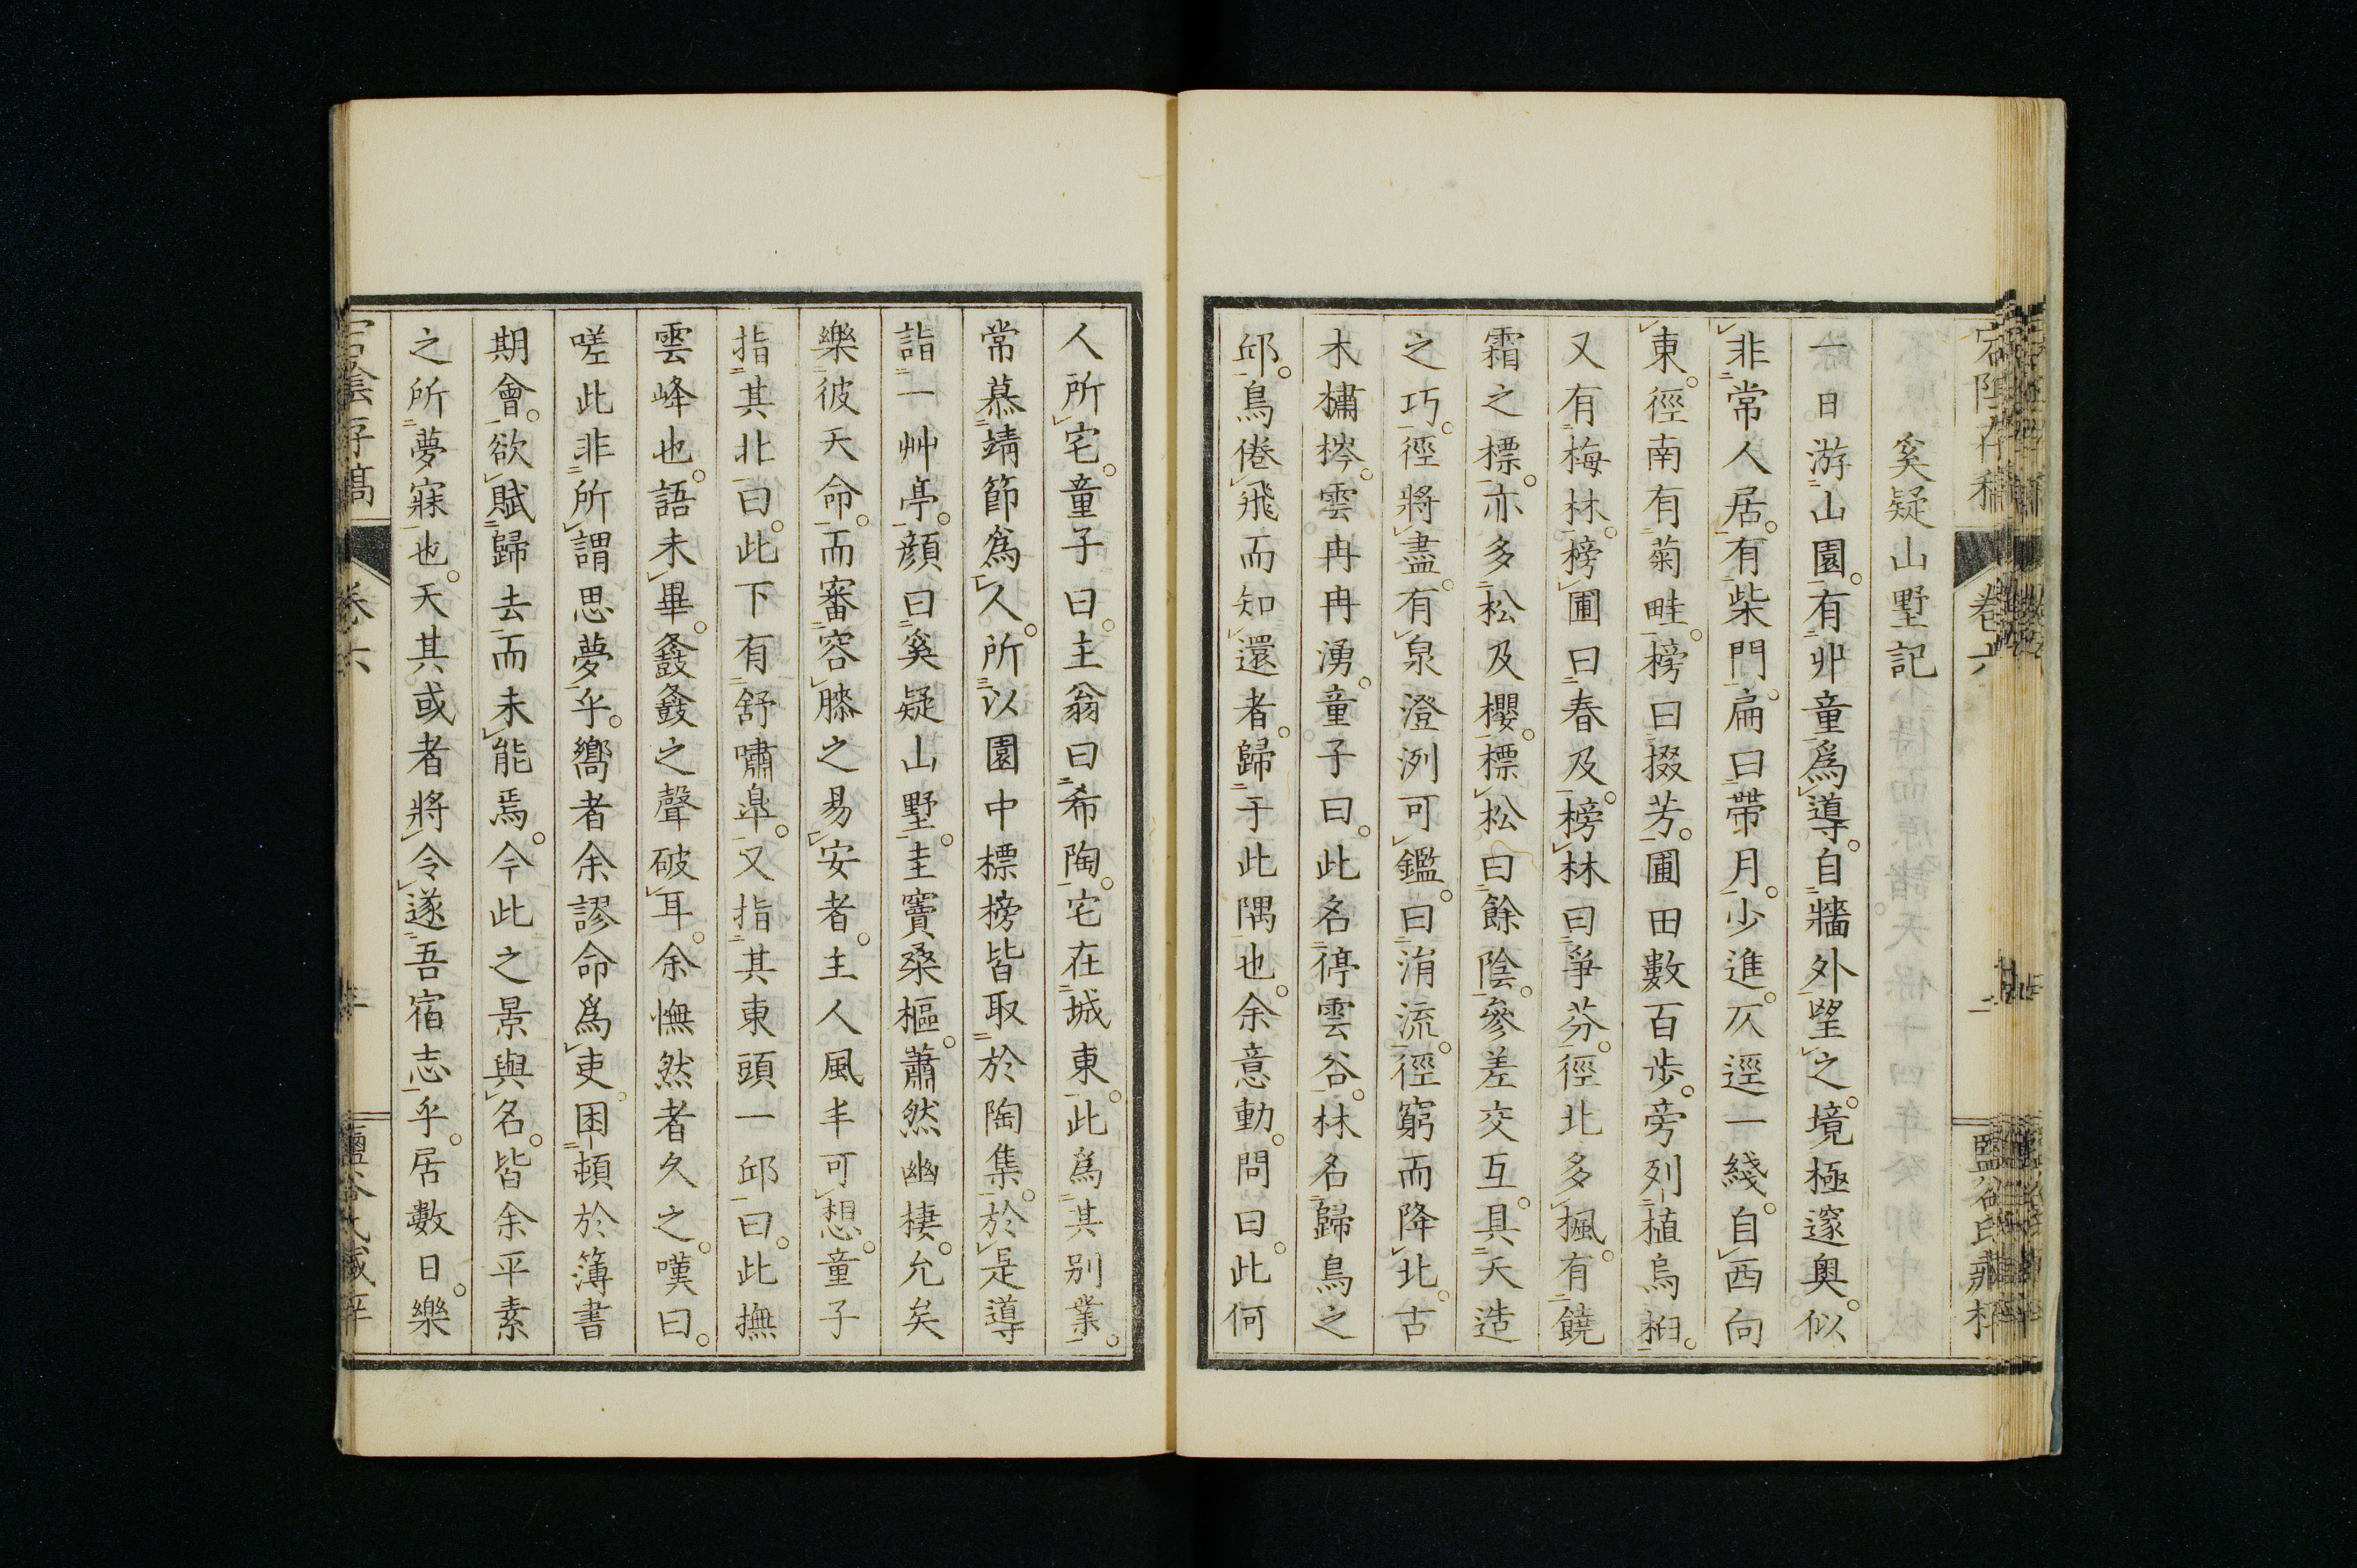 奚疑山墅記
一日游山園。有丱童爲導。自牆外望之。境極邃奧。似
非常人居。有柴門。扁曰帶月。少進。仄逕一綫。自西向
東。徑南有菊畦。榜曰掇芳。圃田數百步。旁列植烏桕。
又有梅林。榜圃曰春及。榜林曰爭芬。徑北多楓。有饒
霜之標。亦多松及櫻。標松曰餘陰。參差交互。具天造
之巧。徑將盡。有泉澄洌可鑑。曰涓流。徑窮而降北。古
木櫹槮。雲冉冉湧。童子曰。此名停雲谷。林名歸鳥之
邱。鳥倦飛而知還者。歸于此隅也。余意動。問曰。此何
人所宅。童子曰。主翁曰希陶。宅在城東。此爲其別業。
常慕靖節爲人。所以園中標榜皆取於陶集。於是導
詣一艸亭。顏曰奚疑山墅。圭竇桑樞。蕭然幽棲。允矣
樂彼天命。而審容膝之易安者。主人風丰可想。童子
指其北曰。此下有舒嘯皐。又指其東頭一邱曰。此撫
雲峰也。語未畢。鼕鼕之聲破耳。余憮然者久之。嘆曰。
嗟此非所謂思夢乎。嚮者余謬命爲吏。困頓於簿書
期會。欲賦歸去而未能焉。今此之景與名。皆余平素
之所夢寐也。天其或者將令遂吾宿志乎。居數日。樂
卷六